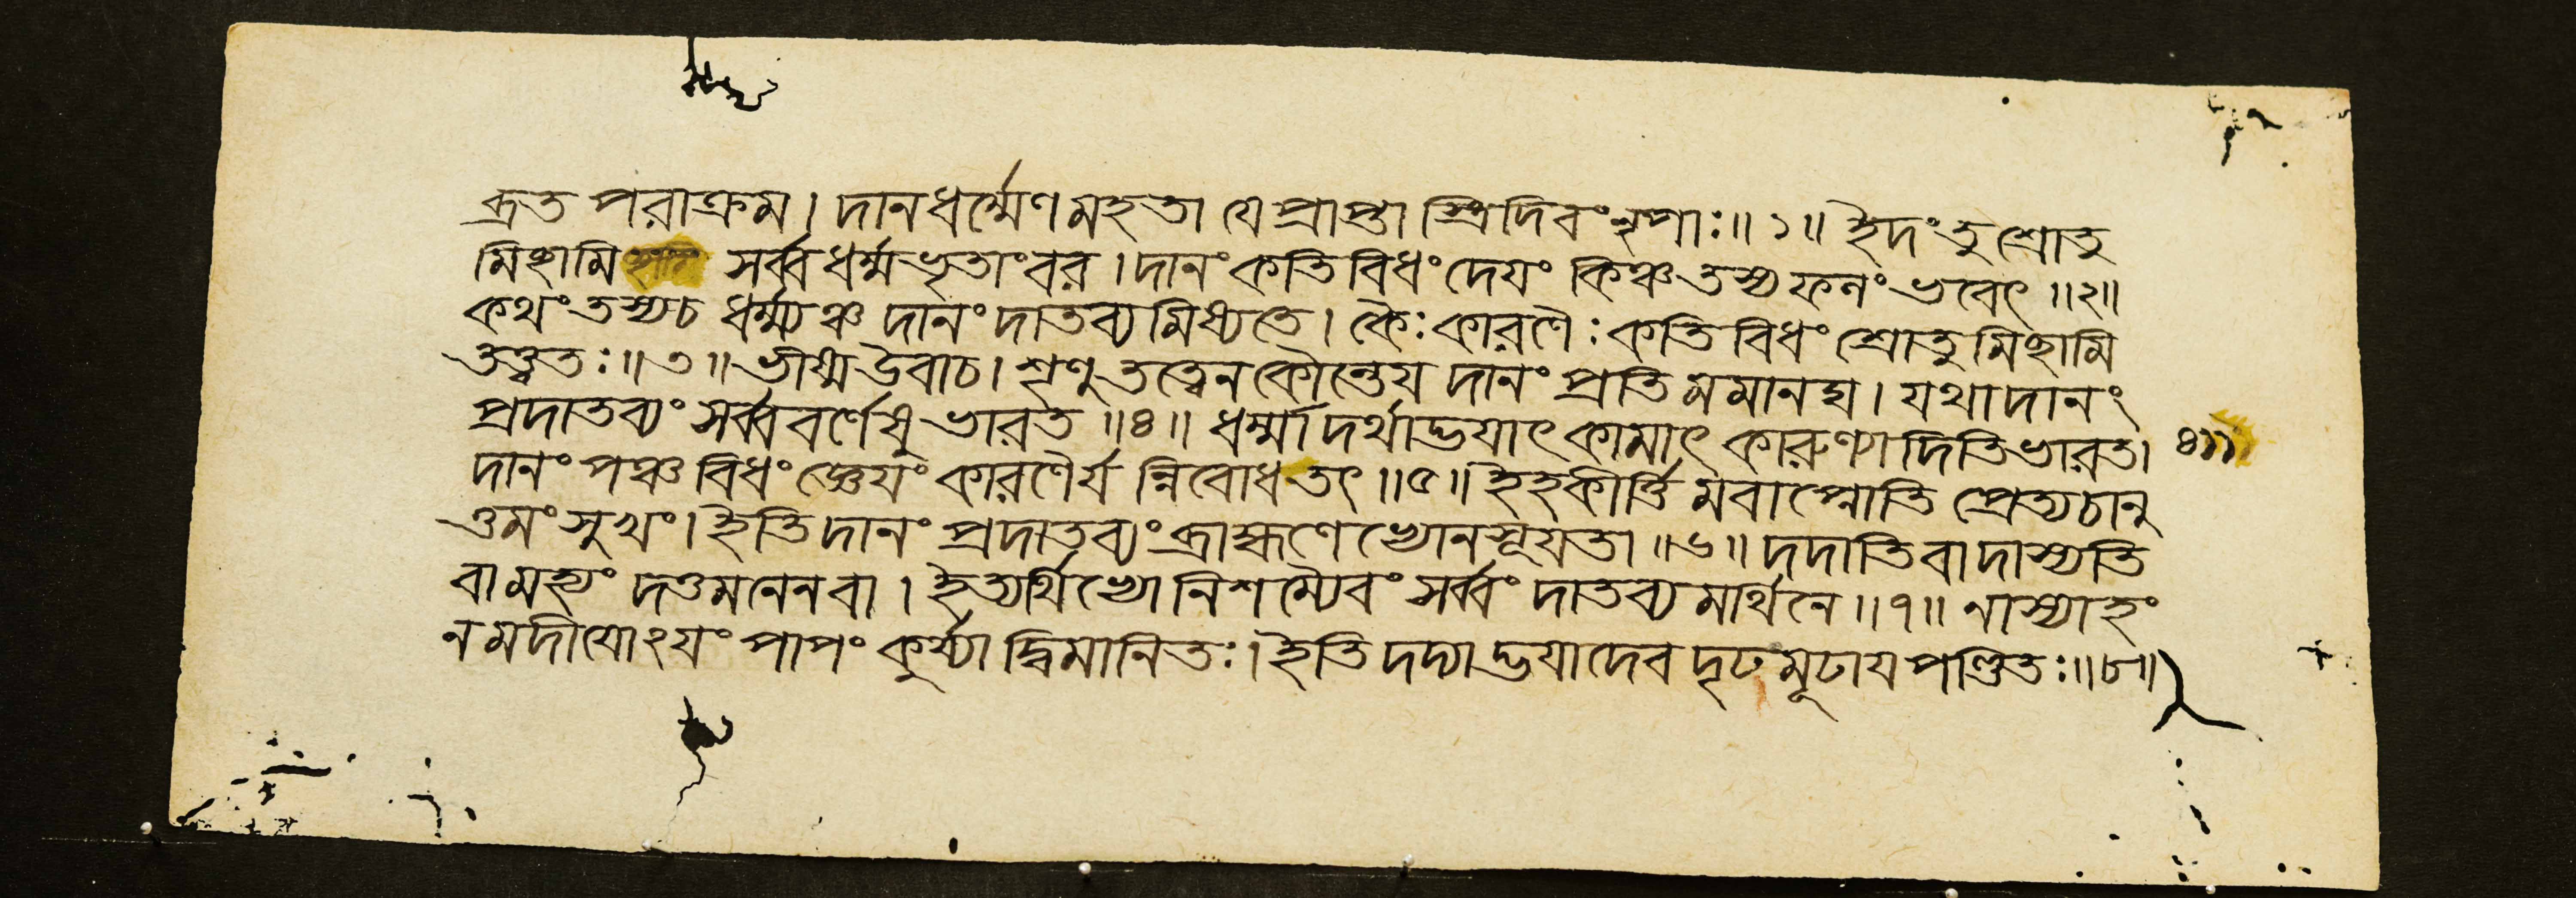 দ্ভুত পরাক্রম। দানধর্ম্মেণ মহতা যে প্রাপ্তা স্ত্রিদিবং নৃপাঃ॥১॥ ইদং তু শ্রোতু
মিছামি সর্ব্ব ধর্ম্মভৃতাং বর। দানং কতি বিধং দেয়ং কিঞ্চ তস্য ফলং ভবেৎ॥২॥
কথং তস্য চ ধর্ম্ম্যঞ্চ দানং দাতব্যমিষ্যতে। কৈঃ কারণৈঃ কতি বিধং শ্রোতুমিছামি
তত্ত্বতঃ॥৩॥ ভীষ্ম উবাচ। শৃণু তত্ত্বেন কৌন্তেয় দানং প্রতি মমানঘ। যথা দানং
প্রদাতব্যং সর্ব্ববর্ণেষু ভারত॥৪॥ ধর্ম্মাদর্থাদ্ভয়াৎ কামাৎ কারুণ্যাদিতি ভারত। ৪॥
দানং পঞ্চ বিধং জ্ঞেয়ং কারণৈর্য ন্নিবোধ তৎ॥৫॥ ইহ কীর্ত্তি মবাপ্নোতি প্রেত্য চানু
ত্তমং সুখং। ইতি দানং প্রদাতব্যং ব্রাহ্মণেভ্যোনসূয়তা॥৬॥ দদাতি বা দাস্যতি
বা মহ্যং দত্তমনেন বা। ইত্যর্থিভ্যো নিশম্যৈবং সর্ব্বং দাতব্যমর্থিনে॥৭॥ নাস্যাহং
ন মদীয়োঽয়ং পাপং কুর্য্যাদ্বিমানিতঃ। ইতি দদ্যাদ্ভয়াদেব দৃঢং মূঢায় পণ্ডিতঃ॥৮॥